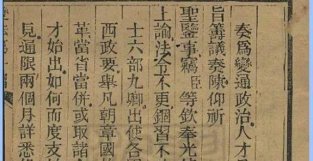 奏爲變通政治人才
旨籌議奏陳仰祈
聖鑒事竊臣等欽奉光
上諭法令不更錮習不
士六部九卿出使各
西政要舉凡朝章國
革當省當併或取諸
才始出如何而度支
見通限兩個月詳悉